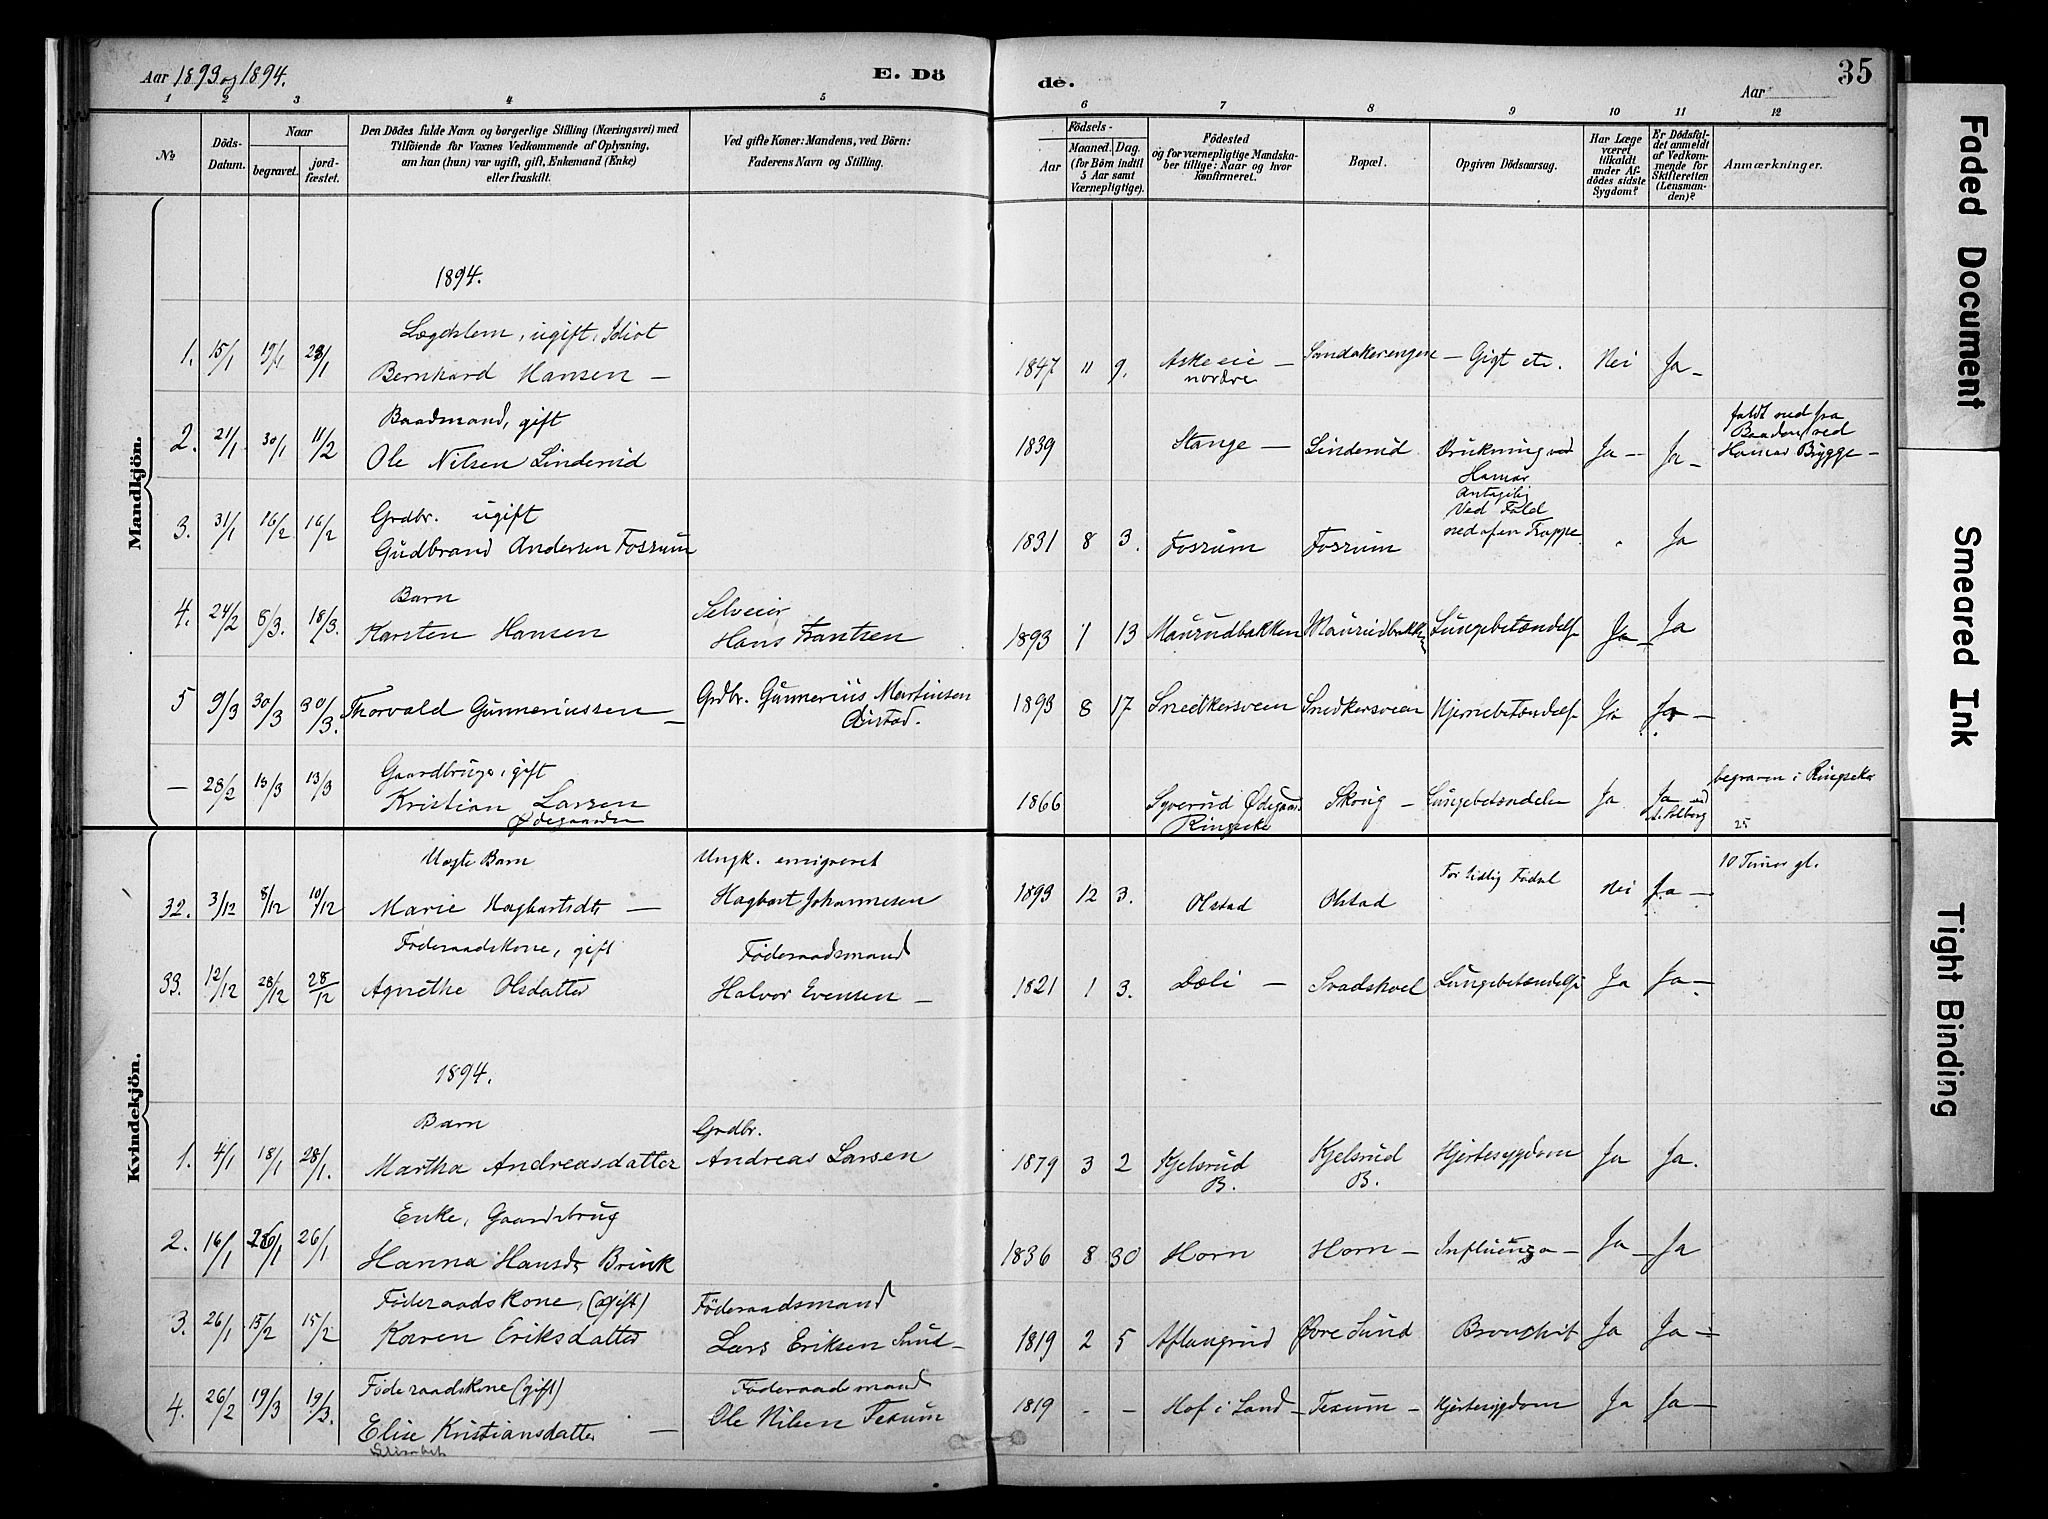 Aar 1893 og 1894.
E. Dö
de.
Aar
35
1 2 3 4 5 6 7 8 9 10 11 12
№
Döds-Datum.
Naar
begravet.
jord-fæstet.
Den Dödes fulde Navn og borgerlige Stilling (Næringsvei) med
Tilföiende for Voxnes Vedkommende af Oplysning,
om han (hun) var ugift, gift, Enkemand (Enke)
eller fraskilt.
Ved gifte Koner: Mandens, ved Börn:
Faderens Navn og Stilling.
Födsels-
Aar
Maaned.
Dag.
(for Börn indtil
5 Aar samt
Værnepligtige).
Födested
og for værnepligtige Mandska-
ber tillige: Naar og hvor
konfirmeret.
Bopæl.
Opgiven Dödsaarsag.
Har Læge
været
tilkaldt
under Af-
dödes sidste
Sygdom?
Er Dödsfal-
det anmeldt
af Vedkom-
mende for
Skifteretten
(Lensman-
den)?
Anmærkninger.
Mandkjön.
1894.
Lægdslem, ugift, Idiot
1. 15/1 19/1 28/1 Bernhard Hansen — 1847 11 9. Aske eie — Sandakerengen — Gigt etc. Nei Ja —
nordre
Baadmand, gift
2. 21/1 30/1 11/2 Ole Nilsen Linderud 1839 Stange — Linderud Drukning ved Ja — Ja —
Hamar
faldt ned fra
Baaden ved
Hamar Brygge —
Grdbr. ugift
3. 31/1 16/2 16/2 Gudbrand Andersen Fossum 1831 8 3. Fossum Fossum
Antagelig
Ved Fald
ned af en Trappe. " Ja
Barn Selveier
4. 24/2 8/3. 18/3. Karsten Hansen Hans Frantsen 1893 1 13 Maurudbakken Maurudbakken Lungebetændelse Ja — Ja
5 9/3 30/3 30/3. Thorvald Gunneriussen — Grdbr. Gunnerius Martinsen 1893 8 17 Snedkersveen Snedkersveen Hjernebetændelse Ja Ja —
Gaardbruger, gift
— 28/2 13/3 13/3 Kristian Larsen 1866 Syverud Ødegaard Skoug — Lungebetændelse Ja Ja
Ødegaarden Ringsaker
begraven i Ringsaker
25
Kvindekjön.
Uægte Barn Ungk. emigreret
32. 3/12 8/12 10/12 Marie Hagbartsdtr — Hagbart Johannesen 1893 12 3. Olstad Olstad For tidlig Fødsel Nei Ja —
10 Timer gl.
Føderaadskone, gift Føderaadsmand
33. 12/12 28/12 28/12 Agnethe Olsdatter Halvor Evensen — 1821 1 3. Dæli — Lungebetændelse Ja Ja —
1894.
Barn Grdbr.
1. 4/1 18/1 28/1. Martha Andreasdatter Andreas Larsen 1879 3 2 Kjelsrud Kjelsrud Hjertesygdom Ja Ja.
B. B.
Enke, Gaardbrug
2. 16/1 26/1 26/1 Hanna Hansd. Brink 1836 8 30 Horn Horn — Influenza — Ja — Ja
Føderaadskone, (gift) Føderaadsmand
3. 26/1 15/2 15/2 Karen Eriksdatter Lars Eriksen Sund — 1819 2 5 Aflangrud Øvre Sund Bronchit Ja Ja —
Føderaadskone (gift) Føderaadmand
4. 26/2 19/3 19/3. Elise Kristiansdatter — Ole Nilsen Tesum 1819 - - Hof i Land — Tesum — Hjertesygdom Ja Ja —
Elisabet
Faded Document
Smeared Ink
Tight Binding